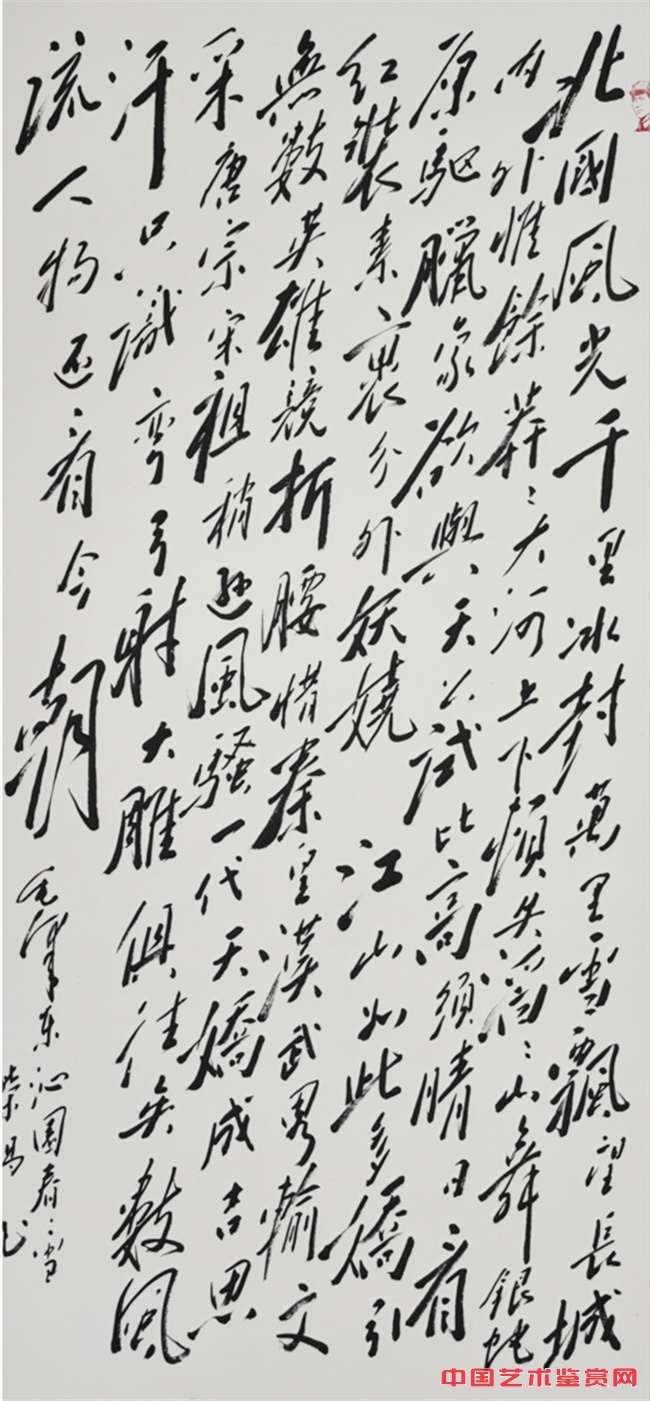 北國風光千里冰封萬里雪飄望長城
内外惟餘莽〻大河上下頓失滔〻山舞銀蛇
原驱臘象欲與天公試比高須晴日看
红裝素裹分外妖嬈 江山如此多嬌引
無數英雄競折腰惜秦皇漢武畧輸文
采唐宗宋祖稍遜風騷一代天嬌成吉思
汗只識彎弓射大雕俱往矣數風
流人物还看今朝
毛澤东沁園春雪
中国艺术鉴赏网